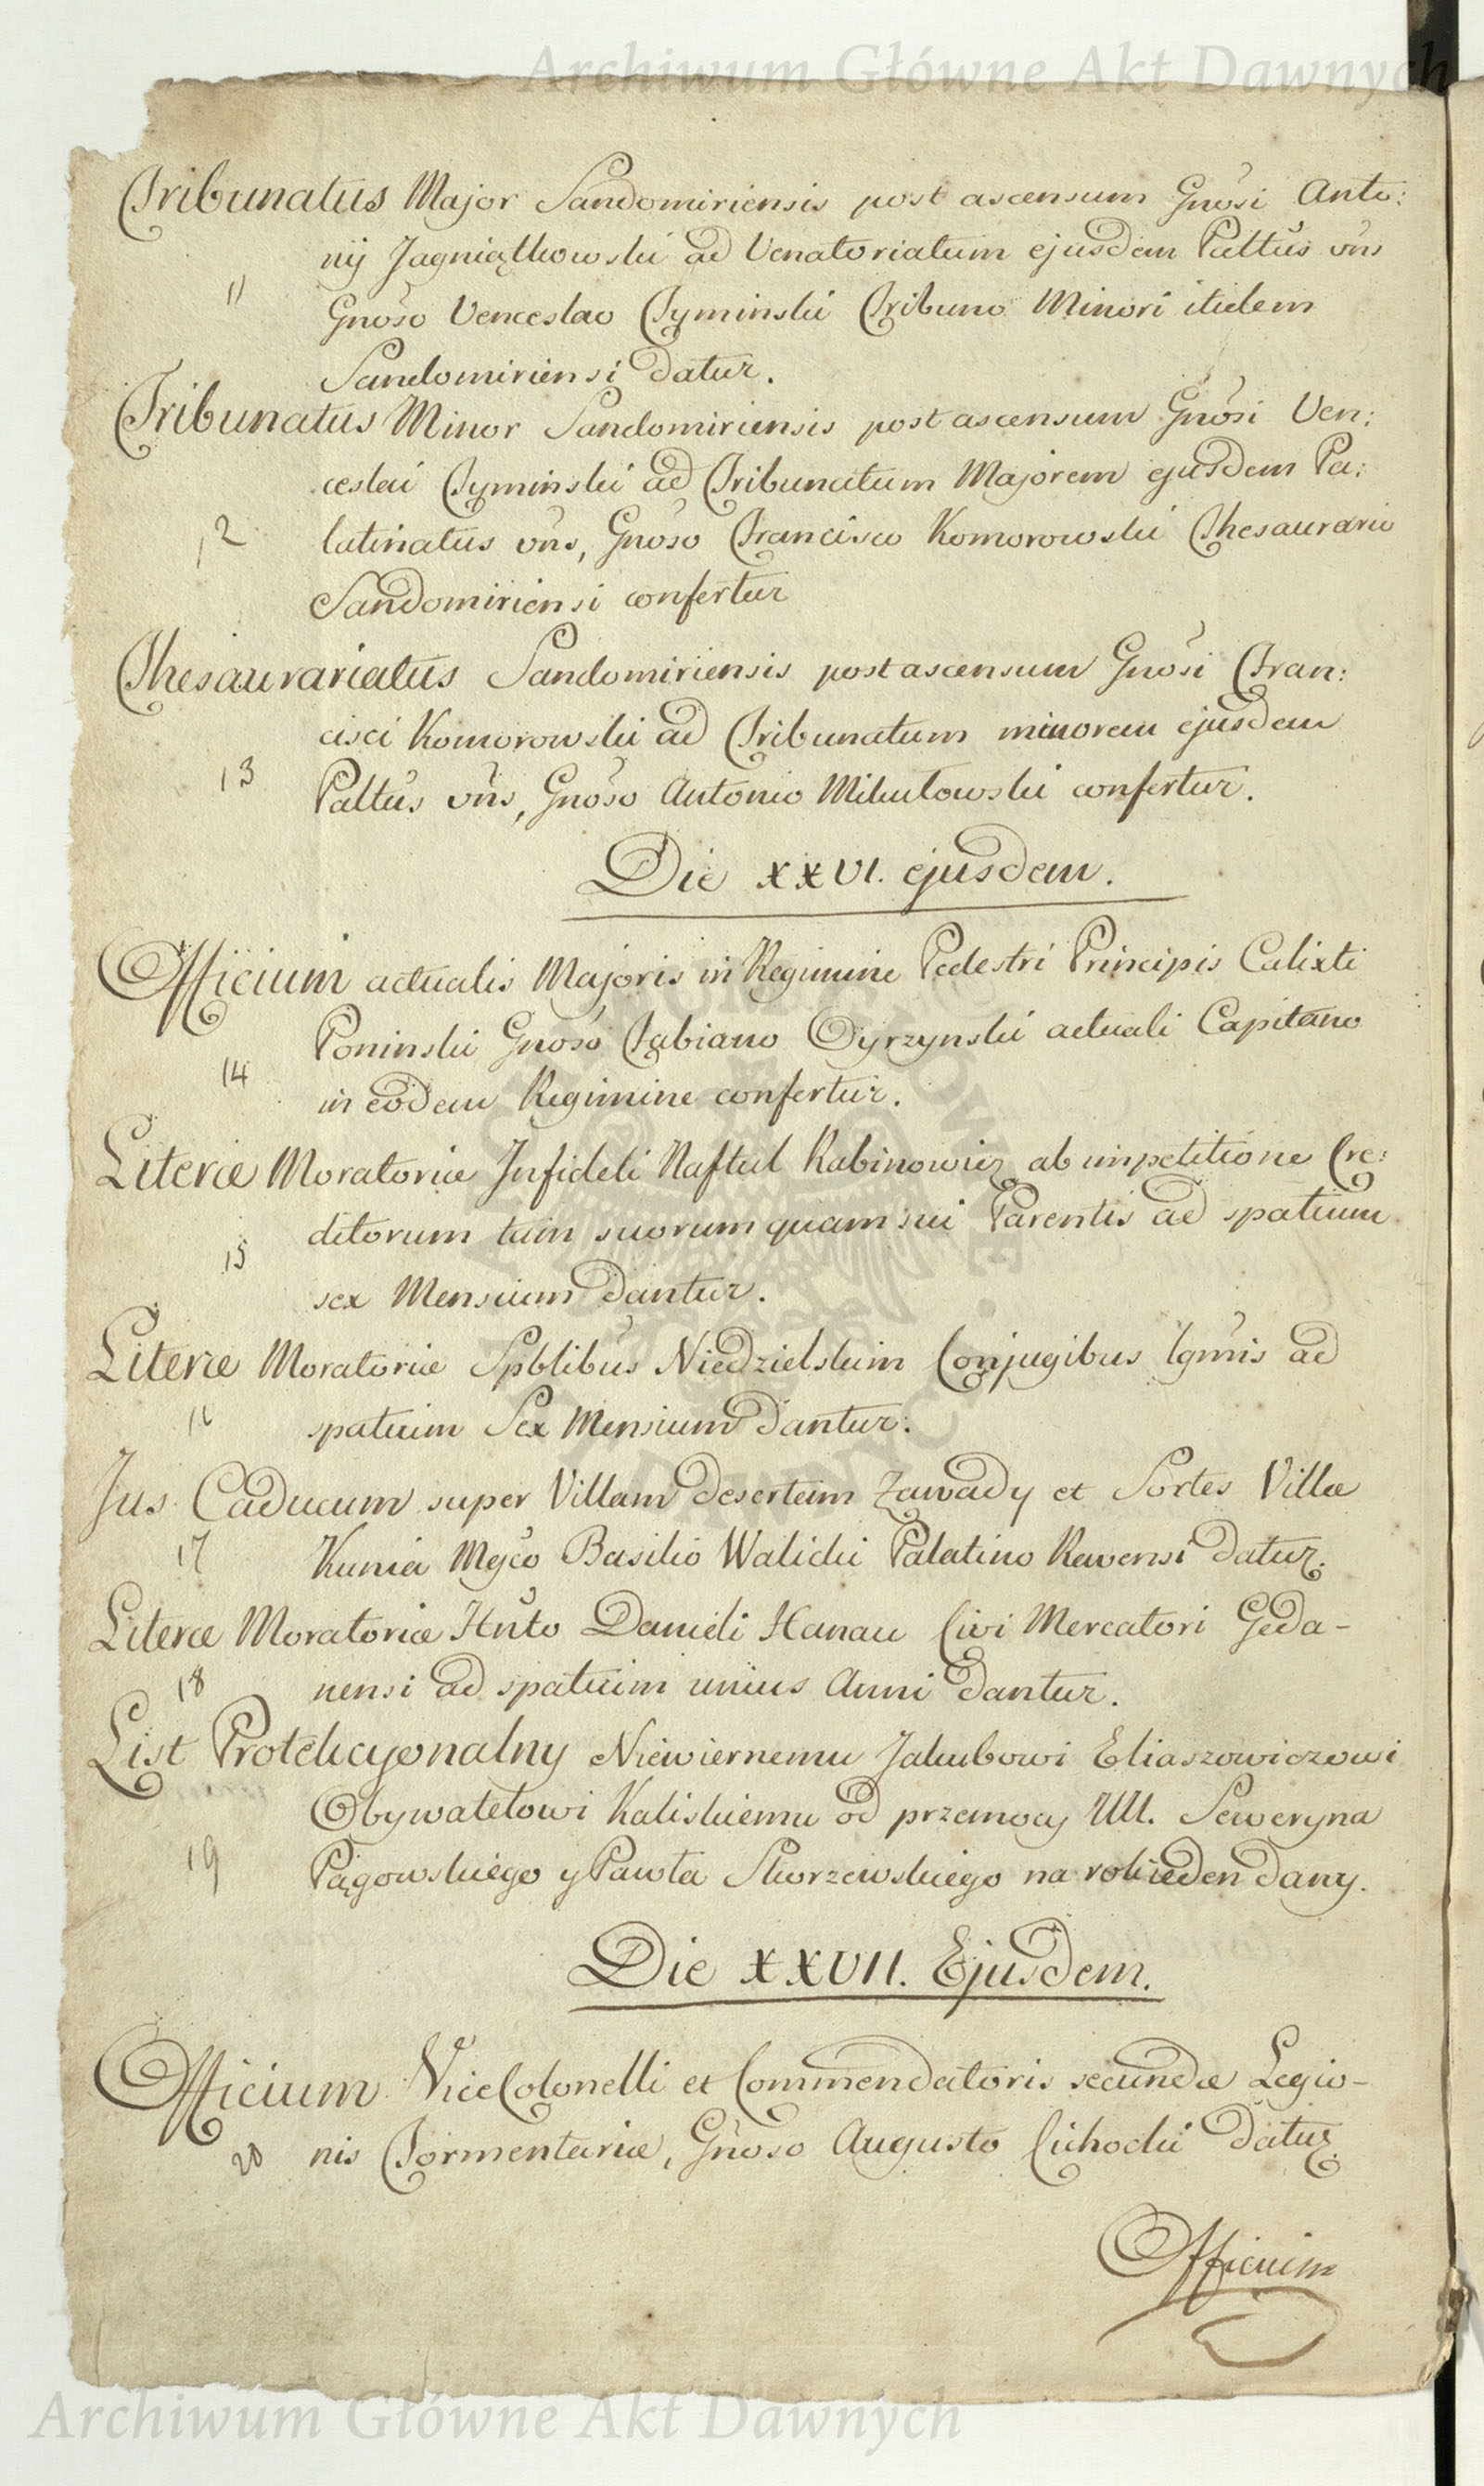 Archiwum Główne Akt Dawnych
Tribunatus Major Sandomiriensis post ascensum Gnosi Anto:
nij Jagniątkowski ad Venatoriatum ejusdem Palltus vns
11
Gnoso Venceslao Tyminski Tribuno Minori itidem
Sandomiriensi datur.
Tribunatus Minor Sandomiriensis post ascensum Gnosi Ven:
ceslai Tyminski ad Tribunatum Majorem ejusdem Pa:
12
latinatus vns, Gnoso Francisco Komorowski Thesaurario
Sandomiriensi confertur
Thesaurariatus Sandomiriensis post ascensum Gnosi Fran:
cisci Komorowski ad Tribunatum minorem ejusdem
13
Palltus vns, Gnoso Antonio Mikułowski confertur.
Die XXVI. ejusdem.
Officium actualis Majoris in Regimine Pedestri Principis Calixti
Poninski Gnoso Fabiano Oyrzynski actuali Capitano
14
in eodem Regimine confertur.
Literæ Moratoriæ Infideli Naftul Rabinowicz ab impetitione Cre:
ditorum tam suorum quam sui Parentis ad spatium
15
sex Mensium dantur.
Literæ Moratoriæ Spblibus Niedzielskim Conjugibus lgmis ad
16
spatium Sex Mensium dantur.
Jus Caducum super Villam desertam Zawady et Sortes Villæ
17
Kunia Mgco Basilio Walicki Palatino Ravensi datur.
Literæ Moratoriæ Hnto Danieli Hanau Civi Mercatori Geda-
18
nensi ad spatium unius Anni dantur.
List Protekcyonalny Niewiernemu Jakubowi Eliaszowiczowi
Obywatelowi Kaliskiemu od przemocy UU. Seweryna
19
Pągowskiego y Pawła Skorzewskiego na rok ieden dany.
Die XXVII. Ejusdem.
Officium ViceColonelli et Commendatoris secundæ Legio-
20
nis Tormentariæ, Gnoso Augusto Cichocki datur.
Officium
Archiwum Główne Akt Dawnych